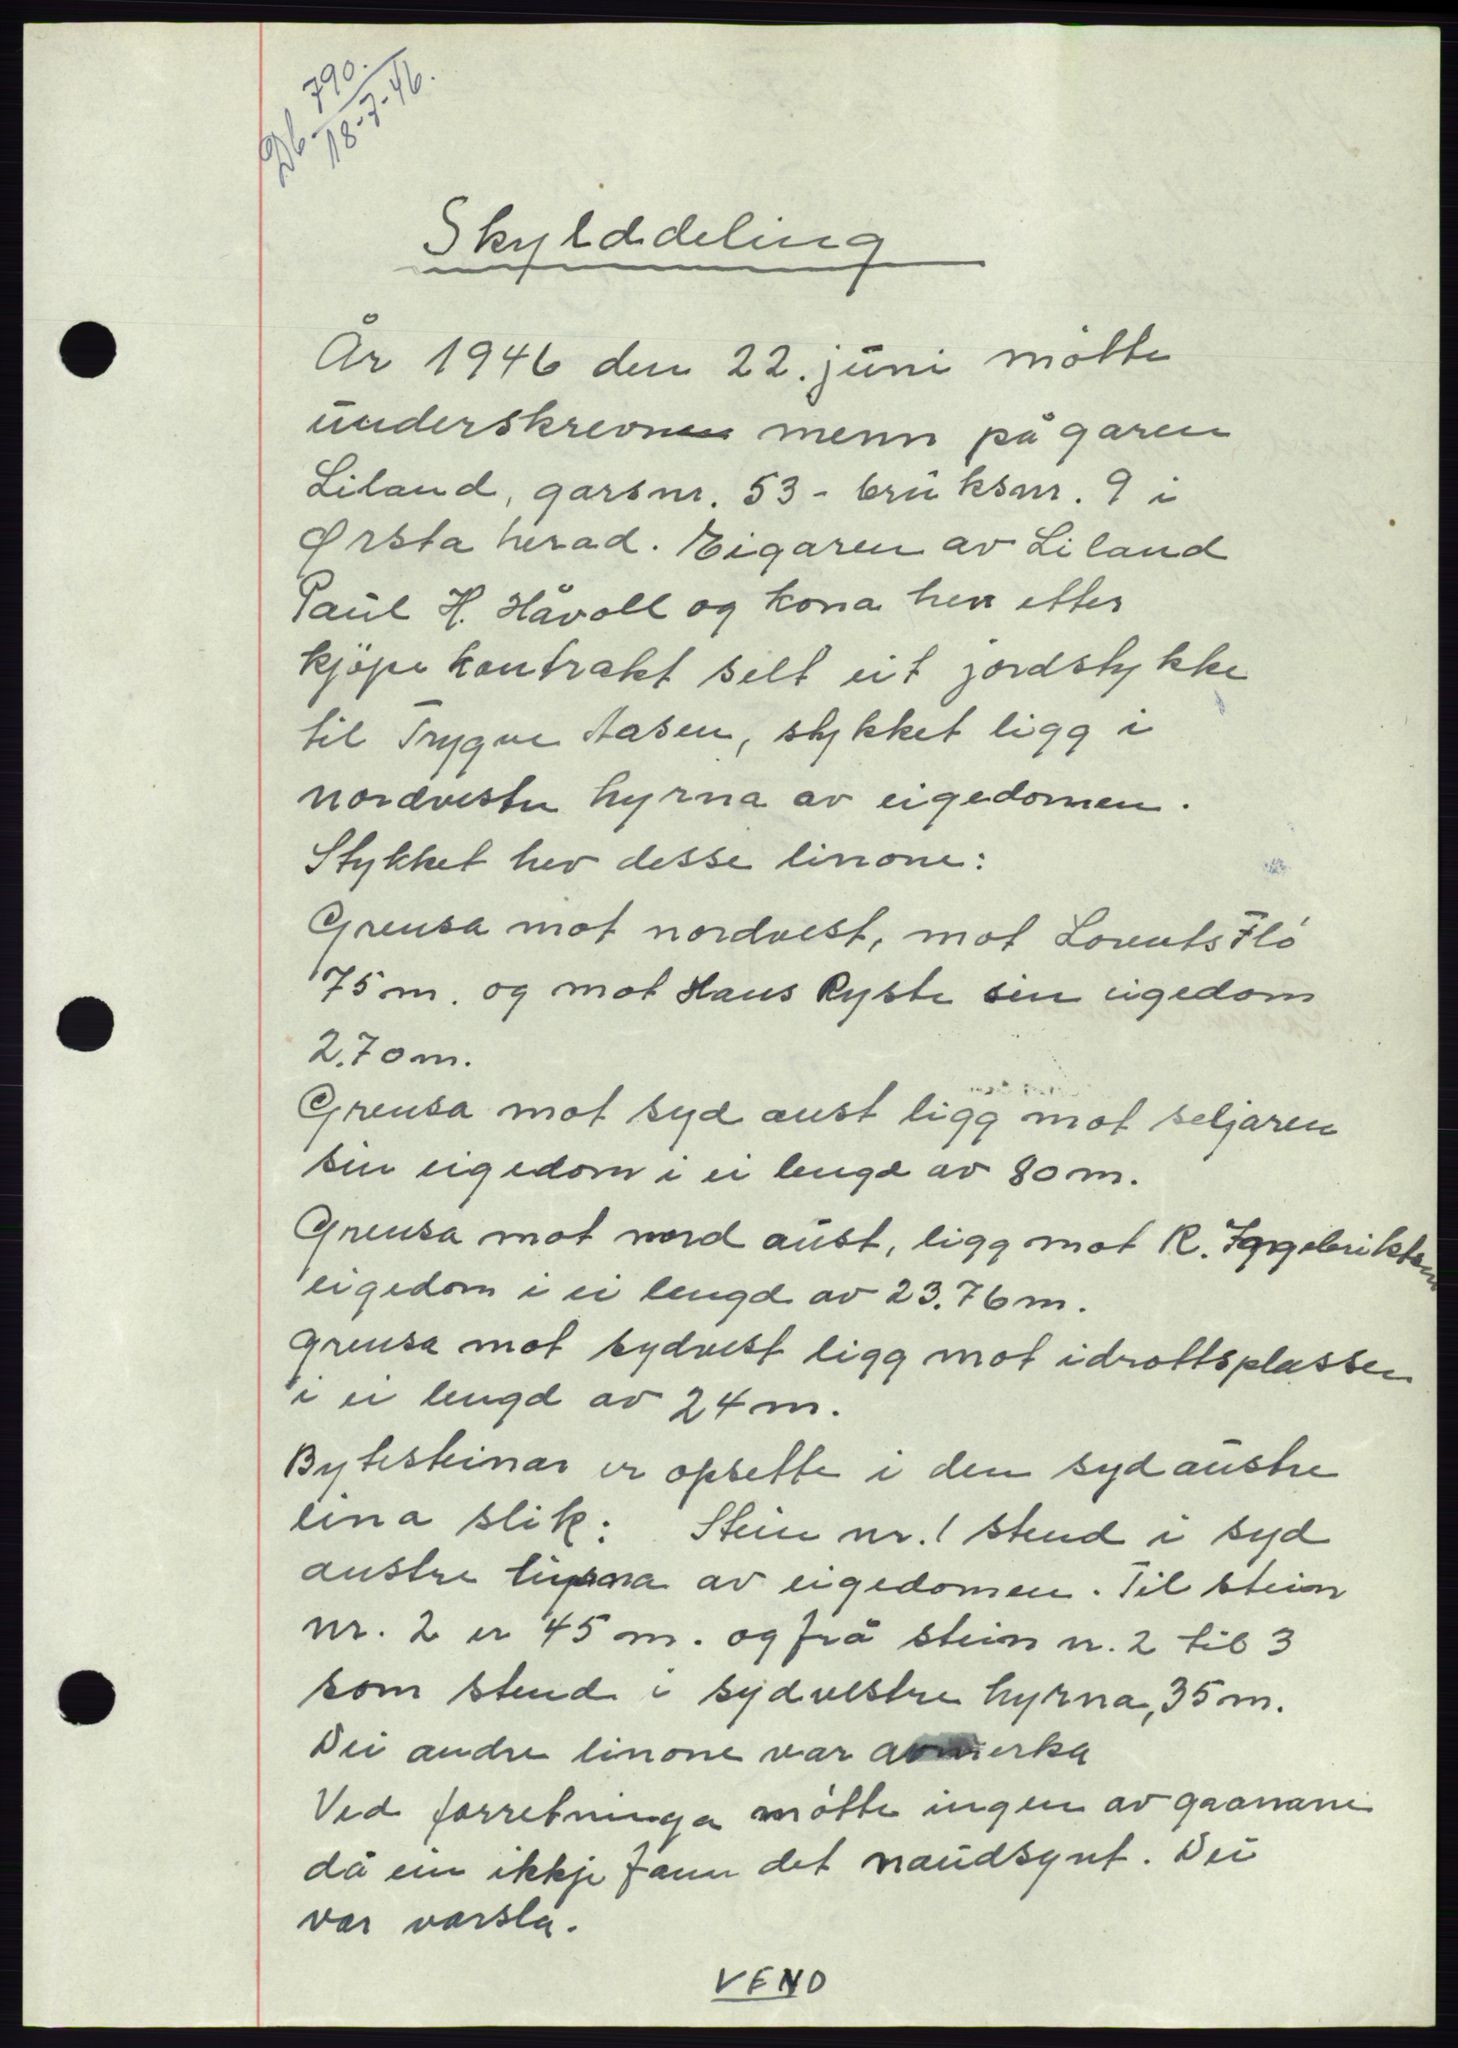 Db. 790.
18-7-46.
Skylddeling
År 1946 den 22. juni møtte
underskrevne menn på garen
Liland, garsnr. 53 - bruksnr. 9 i
Ørsta herad. Eigaren av Liland
Paul H. Håvoll og kona hev etter
kjöpekontrakt selt eit jordstykke
til Trygve Aasen, stykket ligg i
nordvestre hyrna av eigedomen.
Stykket hev desse linone:
Grensa mot nordvest, mot Lorents Flö
75 m. og mot Hans Ryste sin eigedom
2.70 m.
Grensa mot syd aust ligg mot seljaren
sin eigedom i ei lengd av 80 m.
Grensa mot nord aust, ligg mot R.
eigedom i ei lengd av 23.76 m.
grensa mot sydvest ligg mot idrottsplassen
i ei lengd av 24 m.
Bytesteinar er opsette i den sydaustre
lina slik: Stein nr. 1 stend i syd
austre hyrna av eigedomen. Til stein
nr. 2 er 45 m. og frå stein nr. 2 til 3
som stend i sydvestre hyrna, 35 m.
Dei andre linone var avmerka
Ved forretninga møtte ingen av grannane
då ein ikkje fann det naudsynt. Dei
var varsla.
VEND